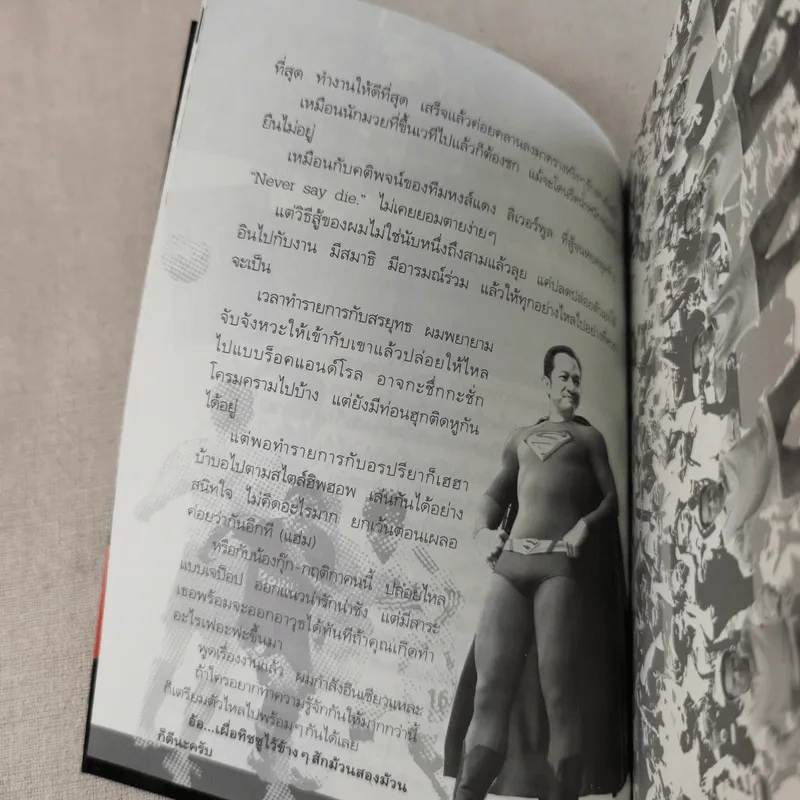 ที่สุด ทำงานให้ดีที่สุด เสร็จแล้วค่อยคลานลงมา
เหมือนนักมวยที่ขึ้นเวทีไปแล้วก็ต้องชก แม้จะโดน
ยืนไม่อยู่
เหมือนกับคติพจน์ของทีมหงส์แดง ลิเวอร์พูล ที่สู้จน
"Never say die." ไม่เคยยอมตายง่ายๆ
แต่วิธีสู้ของผมไม่ใช่นับหนึ่งถึงสามแล้วลุย แต่ปลดปล่อย
อินไปกับงาน มีสมาธิ มีอารมณ์ร่วม แล้วให้ทุกอย่างไหลไปอย่างที่ควร
จะเป็น
เวลาทำรายการกับสรยุทธ ผมพยายาม
จับจังหวะให้เข้ากับเขาแล้วปล่อยให้ไหล
ไปแบบร็อคแอนด์โรล อาจกะชึ่กกะชั่ก
โครมครามไปบ้าง แต่ยังมีท่อนฮุกติดหูกัน
ได้อยู่
แต่พอทำรายการกับอรปรียาก็เฮฮา
บ้าบอไปตามสไตล์ฮิพฮอพ เล่นกันได้อย่าง
สนิทใจ ไม่คิดอะไรมาก ยกเว้นตอนเผลอ
ค่อยว่ากันอีกที (แฮ่ม)
หรือกับน้องกุ๊ก-กฤติกาคนนี้ ปล่อยไหล
แบบเจป็อป ออกแนวน่ารักน่าชัง แต่มีสาระ
เธอพร้อมจะออกอาวุธได้ทันทีถ้าคุณเกิดทำ
อะไรเฟอะฟะขึ้นมา
พูดเรื่องงานแล้ว ผมกำลังอินเชียวแหละ
ถ้าใครอยากทำความรู้จักกันให้มากกว่านี้
ก็เตรียมตัวไหลไปพร้อมๆ กันได้เลย
อ้อ...เผื่อทิชชูไว้ข้างๆ สักม้วนสองม้วน
ก็ดีนะครับ
16